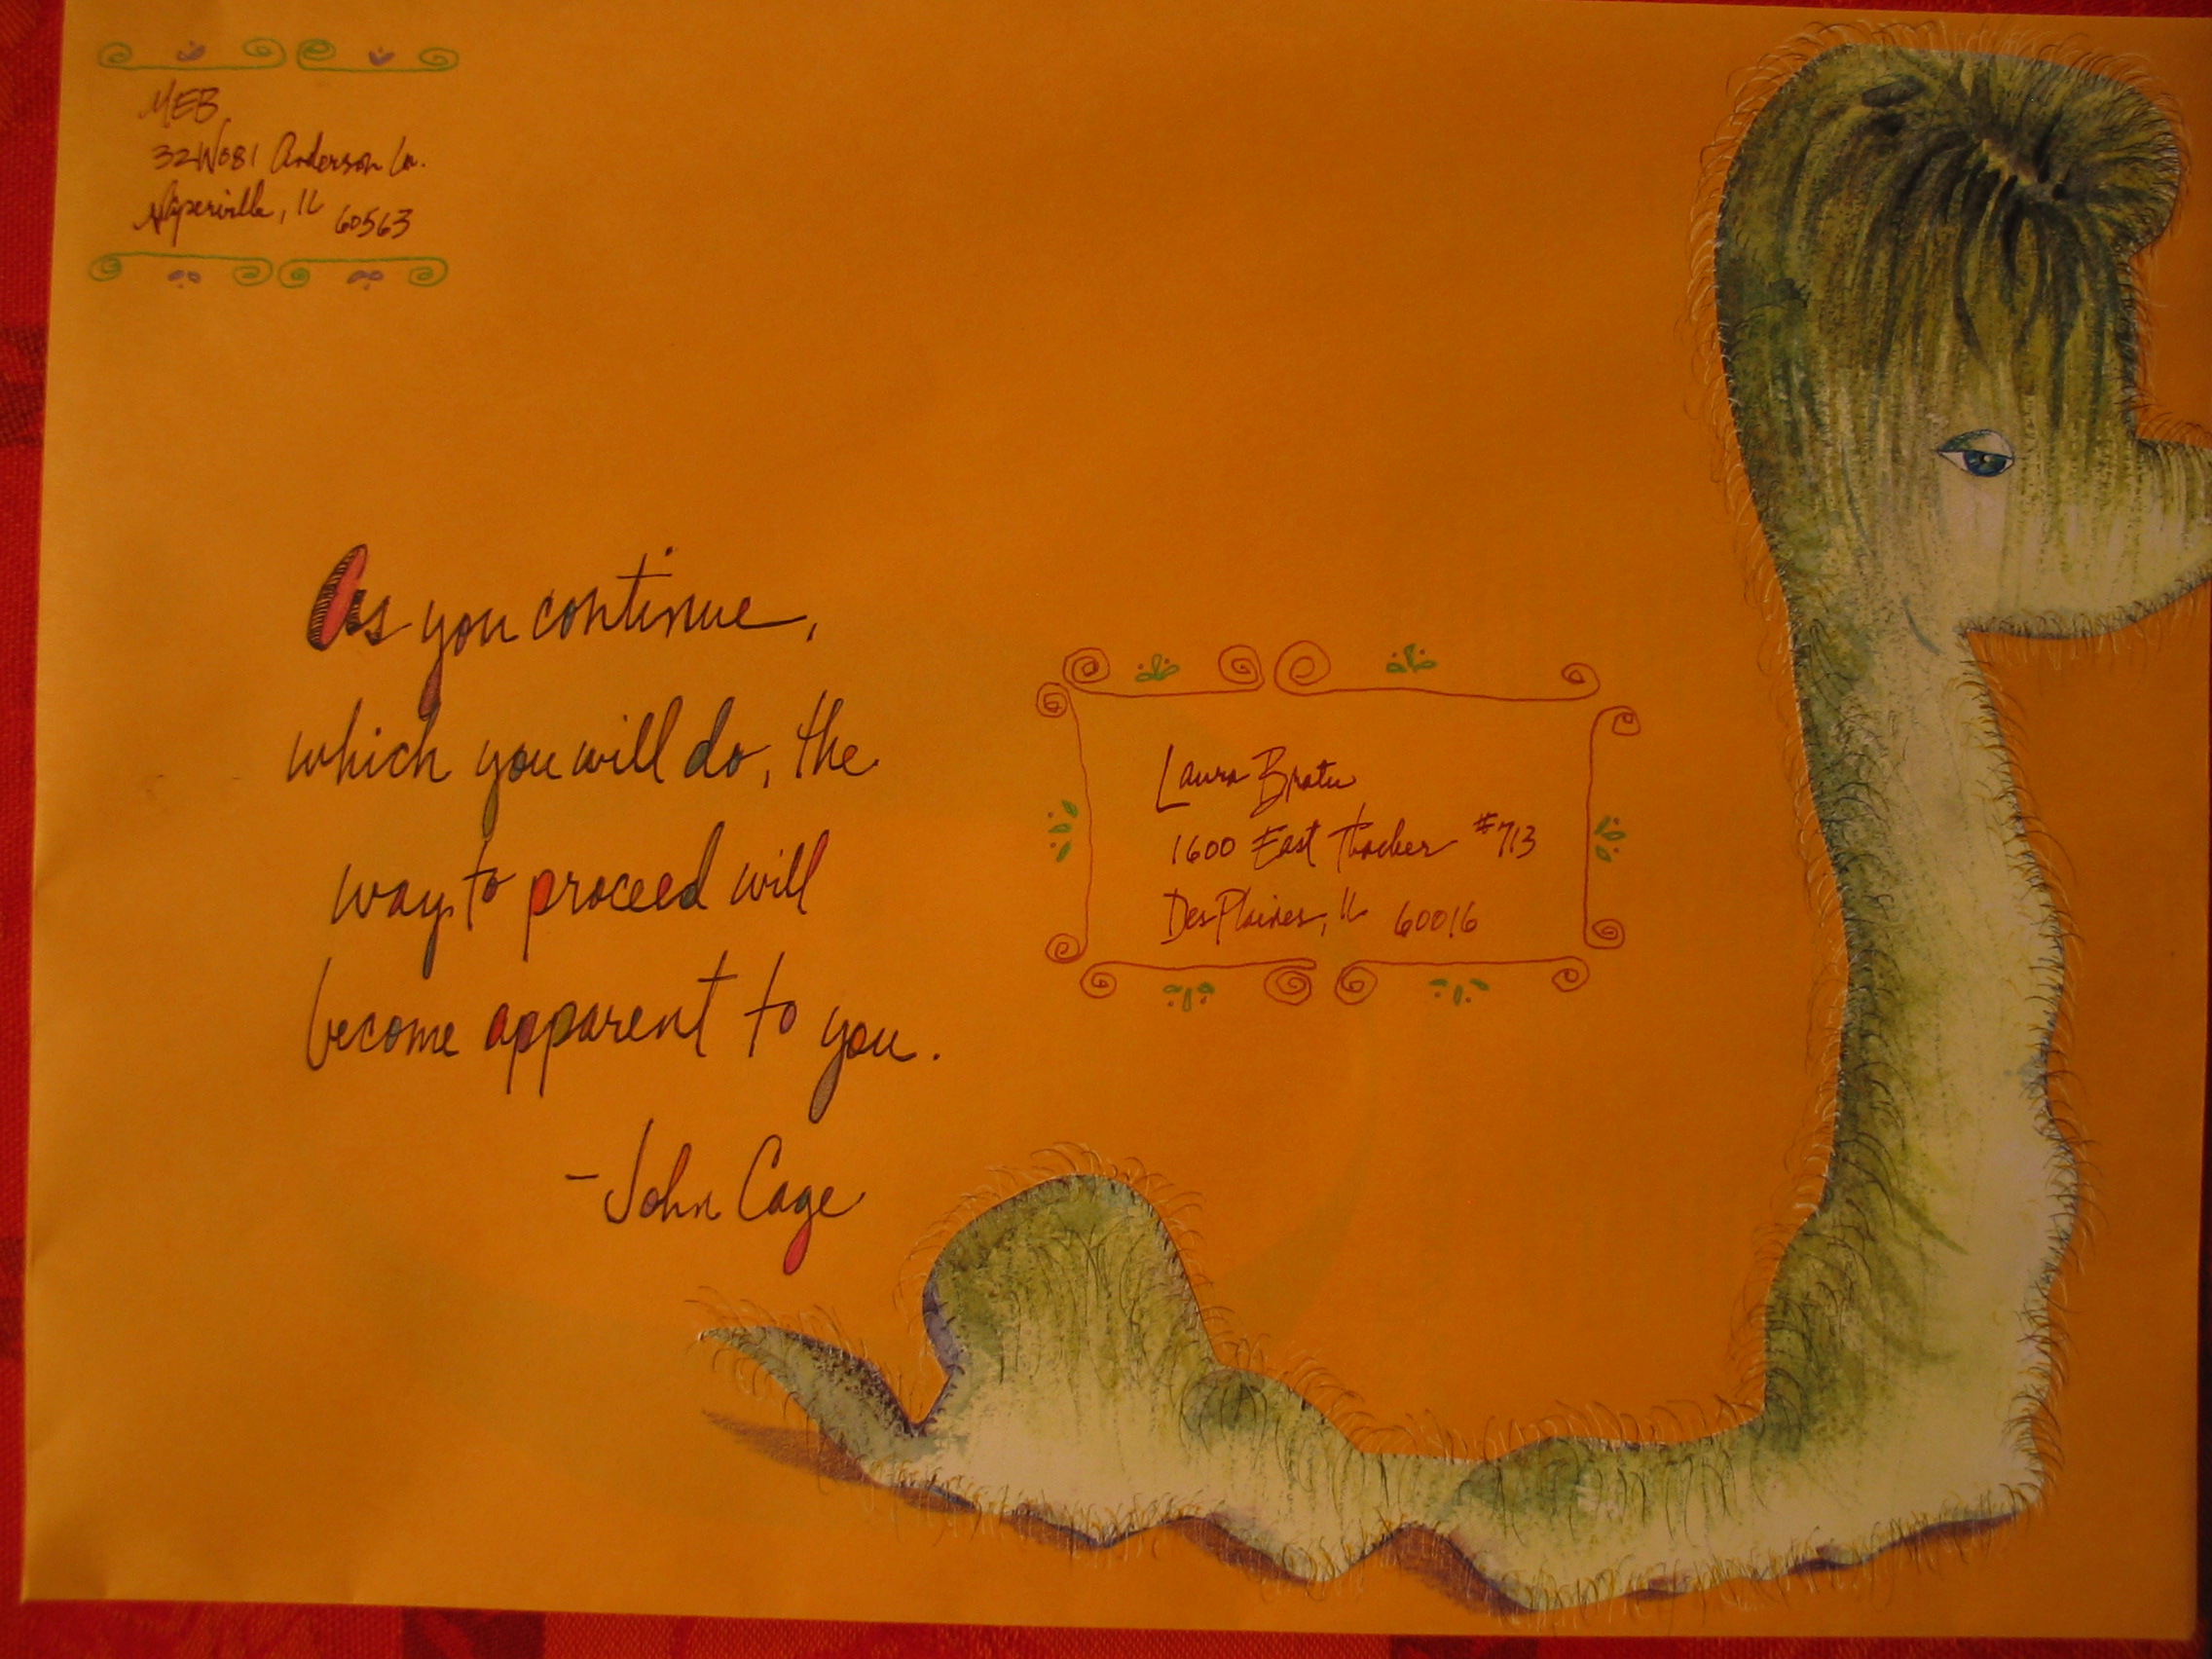 MEB
32W081 Anderson Ln.
Naperville, IL 60563
As you continue,
which you will do, the
way to proceed will
become apparent to you.
- John Cage
Laura Bratu
1600 East Thacker #713
Des Plaines, IL 60016